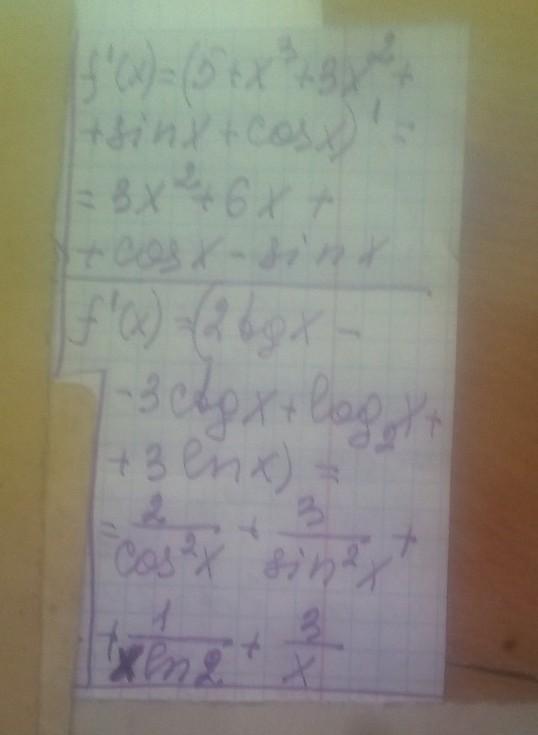 f'(x)=(5+x³+3x²+
+sinx+cosx)'=
=3x²+6x+
+cosx-sinx
f'(x)=(2tgx-
-3ctgx+log₂x+
+3lnx)=
=2/cos²x+3/sin²x+
+1/xln2+3/x